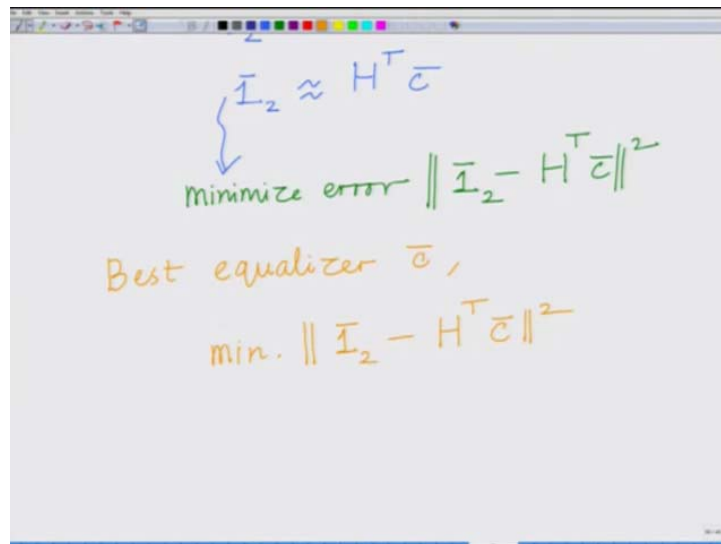 2
1̄₂ ≈ Hᵀ c̄
minimize error ‖ 1̄₂ − Hᵀ c̄ ‖²
Best equalizer c̄,
min. ‖ 1̄₂ − Hᵀ c̄ ‖²